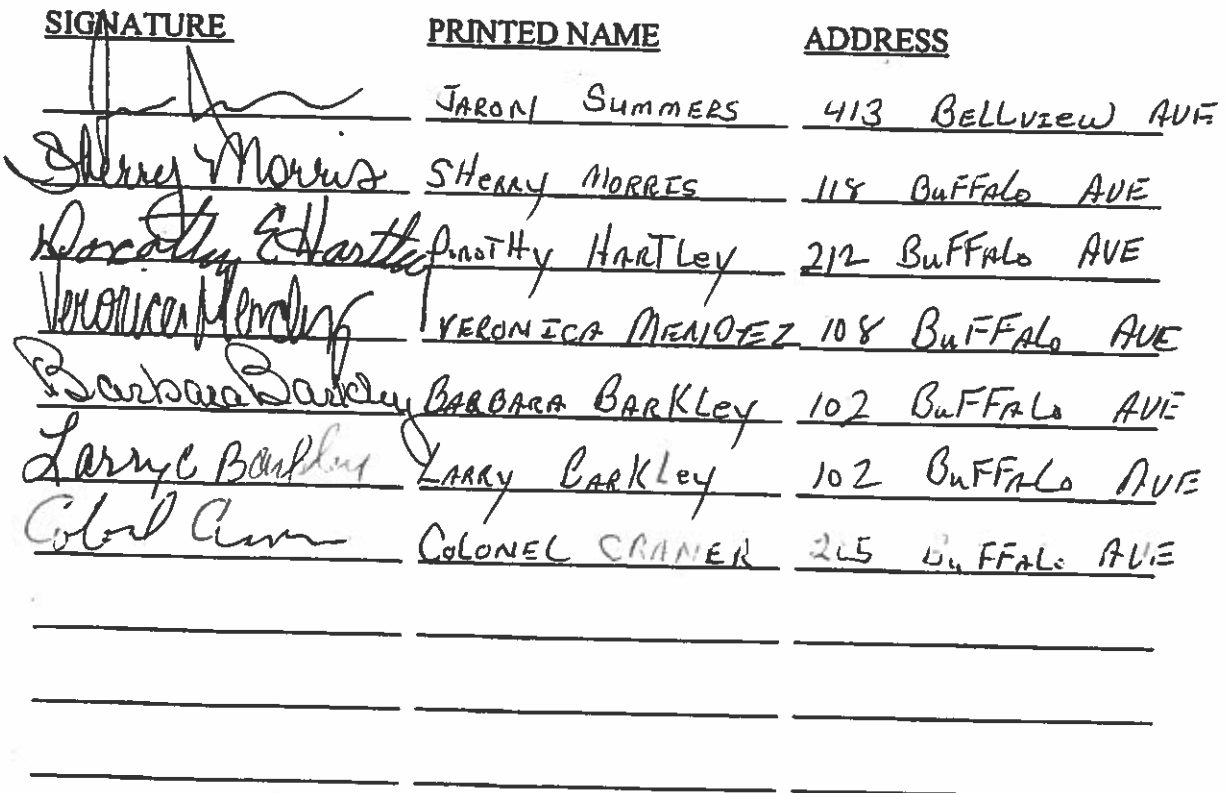 SIGNATURE PRINTED NAME ADDRESS
JARON SUMMERS 413 BELLVIEW AVE
Sherry Morris SHERRY MORRIS 118 BUFFALO AVE
Dorothy E Hartley DOROTHY HARTLEY 212 BUFFALO AVE
Veronica Mendez VERONICA MENDEZ 108 BUFFALO AVE
Barbara Barkley BARBARA BARKLEY 102 BUFFALO AVE
Larry C Barkley LARRY BARKLEY 102 BUFFALO AVE
COLONEL CRAMER BUFFALO AVE